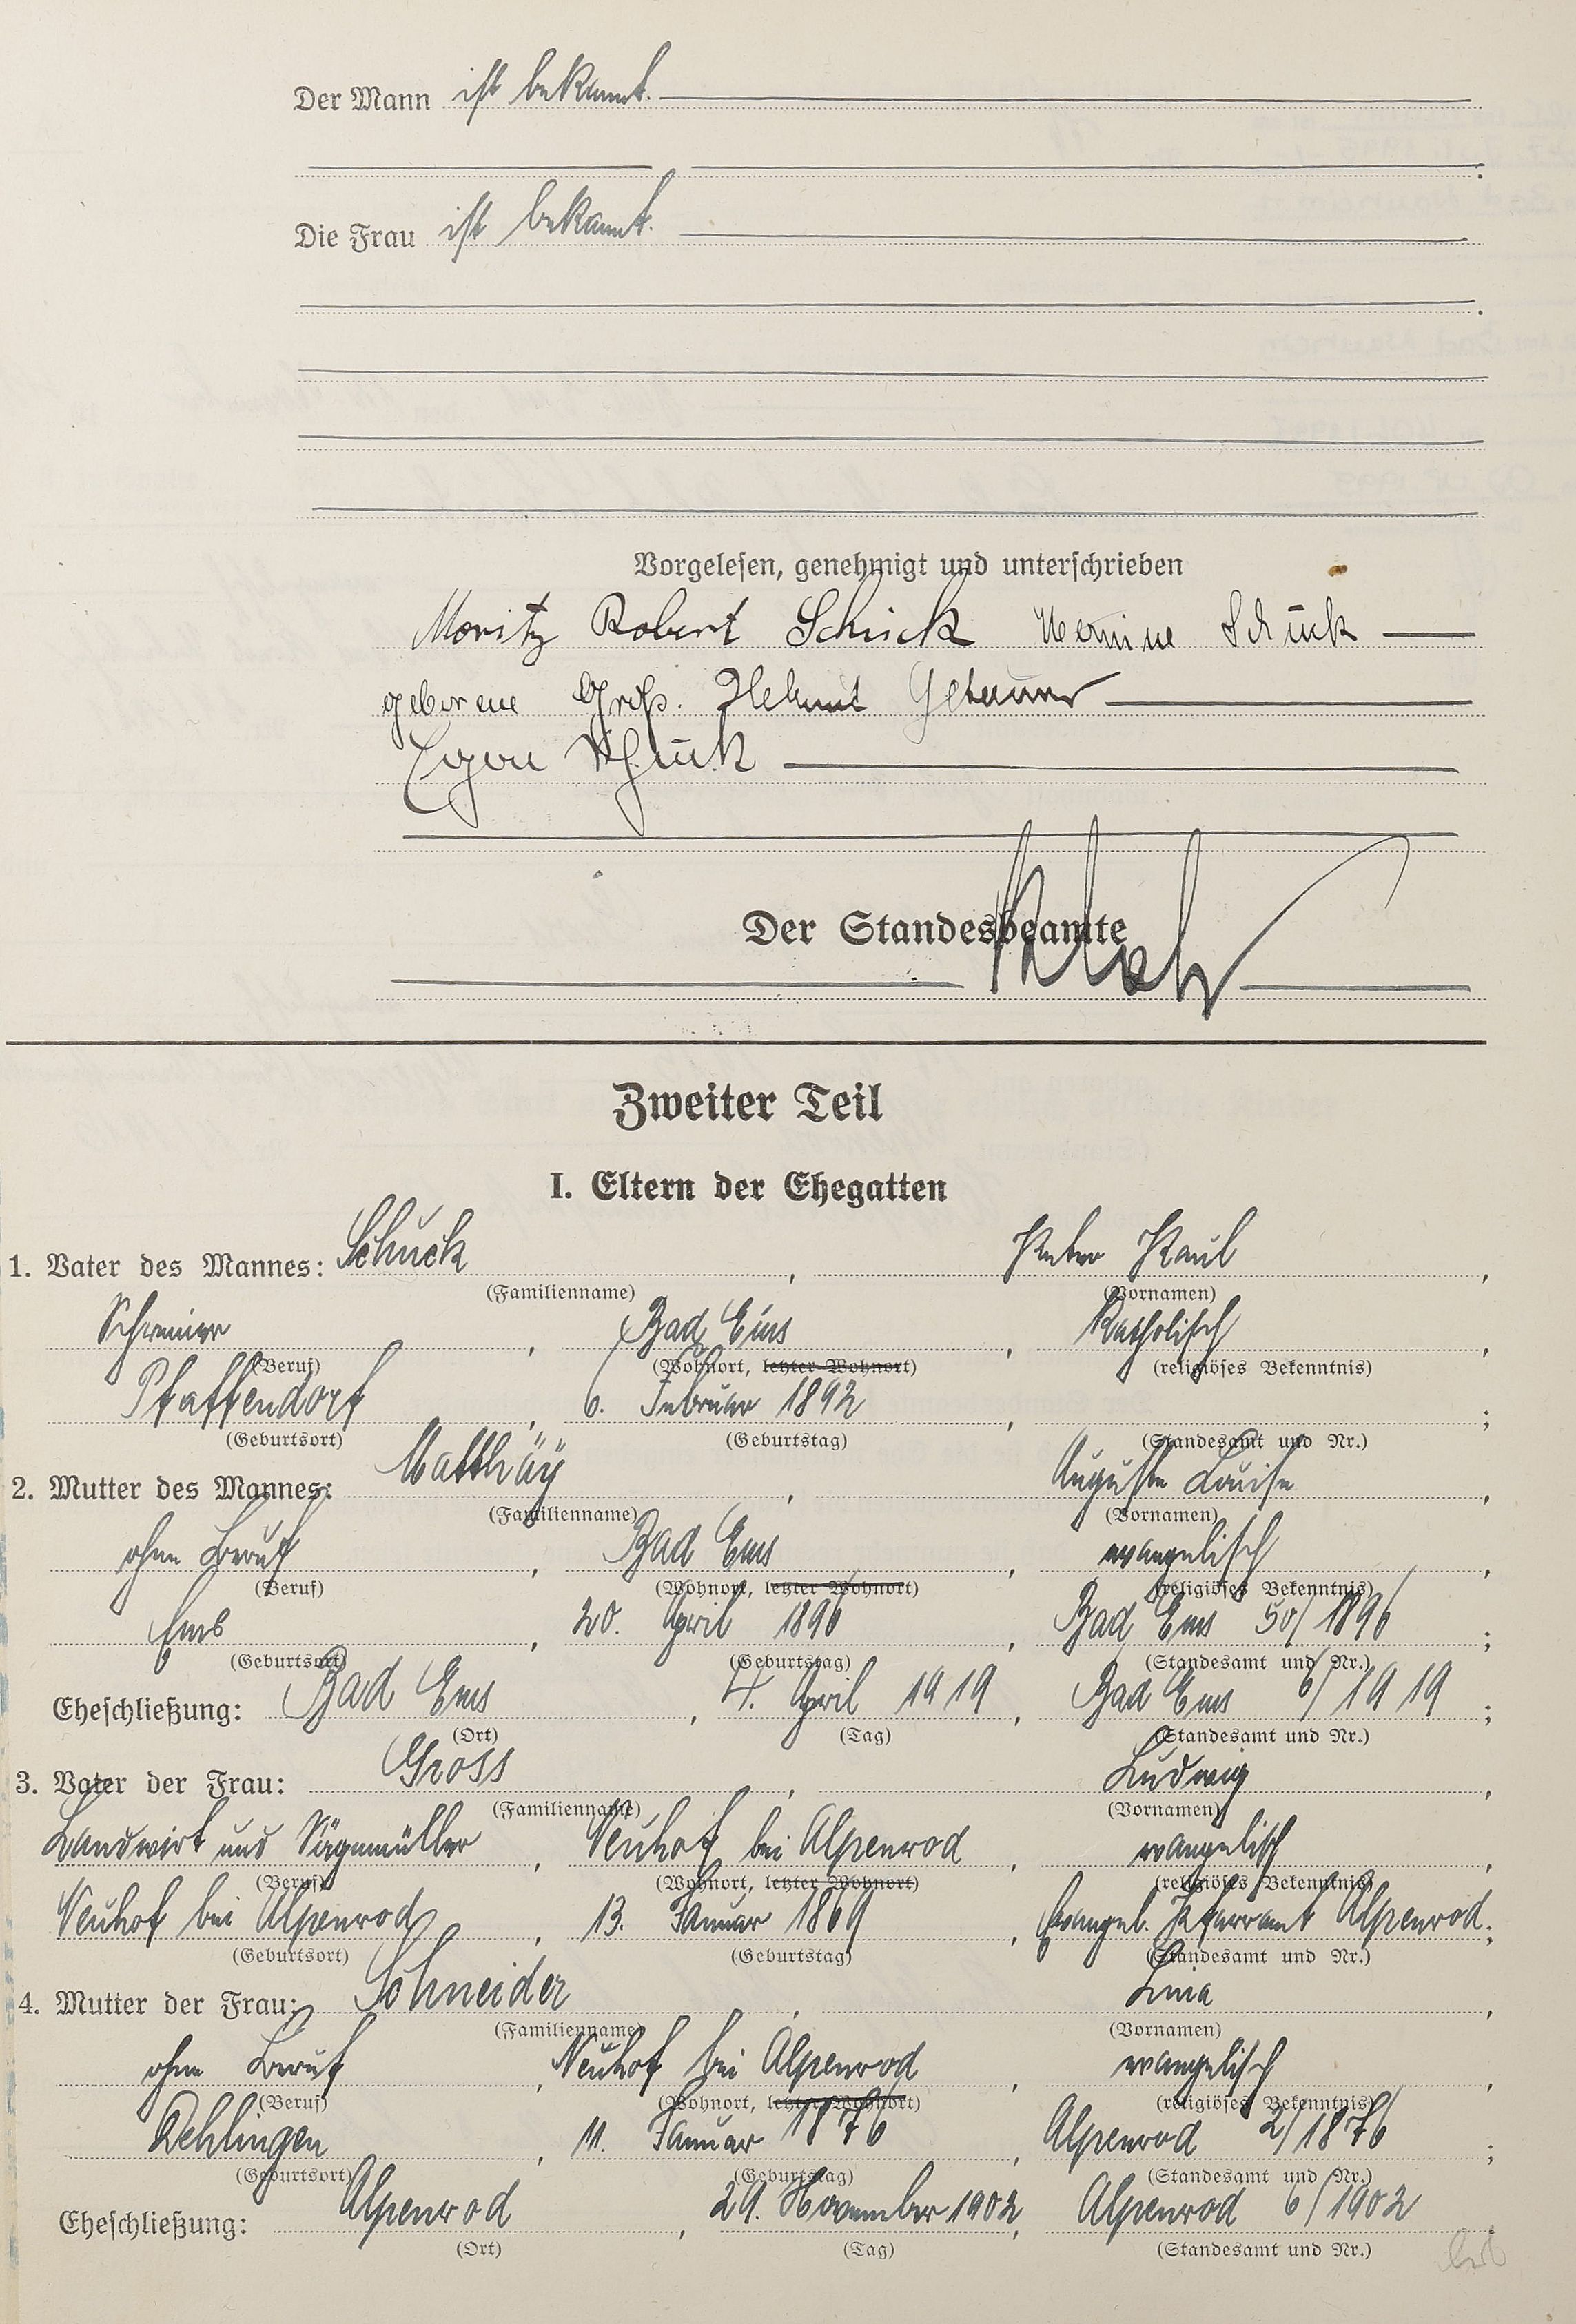 Der Mann ist bekannt.
Die Frau ist bekannt.
Vorgelesen, genehmigt und unterschrieben
Moritz Robert Schuck Hermine Schuck
geborene Groß. Helmut
Egon Schuck
Der Standesbeamte
Zweiter Teil
I. Eltern der Ehegatten
1. Vater des Mannes: Schuck, Peter Paul,
(Familienname) (Vornamen)
Schreiner, Bad Ems, Katholisch,
(Beruf) (Wohnort, letzter Wohnort) (religiöses Bekenntnis)
Pfaffendorf, 6. Februar 1892, ;
(Geburtsort) (Geburtstag) (Standesamt und Nr.)
2. Mutter des Mannes: Matthäy, Auguste Louise,
(Familienname) (Vornamen)
ohne Beruf, Bad Ems, evangelisch,
(Beruf) (Wohnort, letzter Wohnort) (religiöses Bekenntnis)
Ems, 20. April 1896, Bad Ems 50/1896;
(Geburtsort) (Geburtstag) (Standesamt und Nr.)
Eheschließung: Bad Ems, 4. April 1919, Bad Ems 6/1919;
(Ort) (Tag) (Standesamt und Nr.)
3. Vater der Frau: Gross, Ludwig,
(Familienname) (Vornamen)
Landwirt und Sägemüller, Neuhof bei Alpenrod, evangelisch,
(Beruf) (Wohnort, letzter Wohnort) (religiöses Bekenntnis)
Neuhof bei Alpenrod, 13. Januar 1869, Evangel. Pfarramt Alpenrod;
(Geburtsort) (Geburtstag) (Standesamt und Nr.)
4. Mutter der Frau: Schneider, Lina,
(Familienname) (Vornamen)
ohne Beruf, Neuhof bei Alpenrod, evangelisch,
(Beruf) (Wohnort, letzter Wohnort) (religiöses Bekenntnis)
Dehlingen, 11. Januar 1876, Alpenrod 2/1876;
(Geburtsort) (Geburtstag) (Standesamt und Nr.)
Eheschließung: Alpenrod, 29. November 1902, Alpenrod 6/1902
(Ort) (Tag) (Standesamt und Nr.)